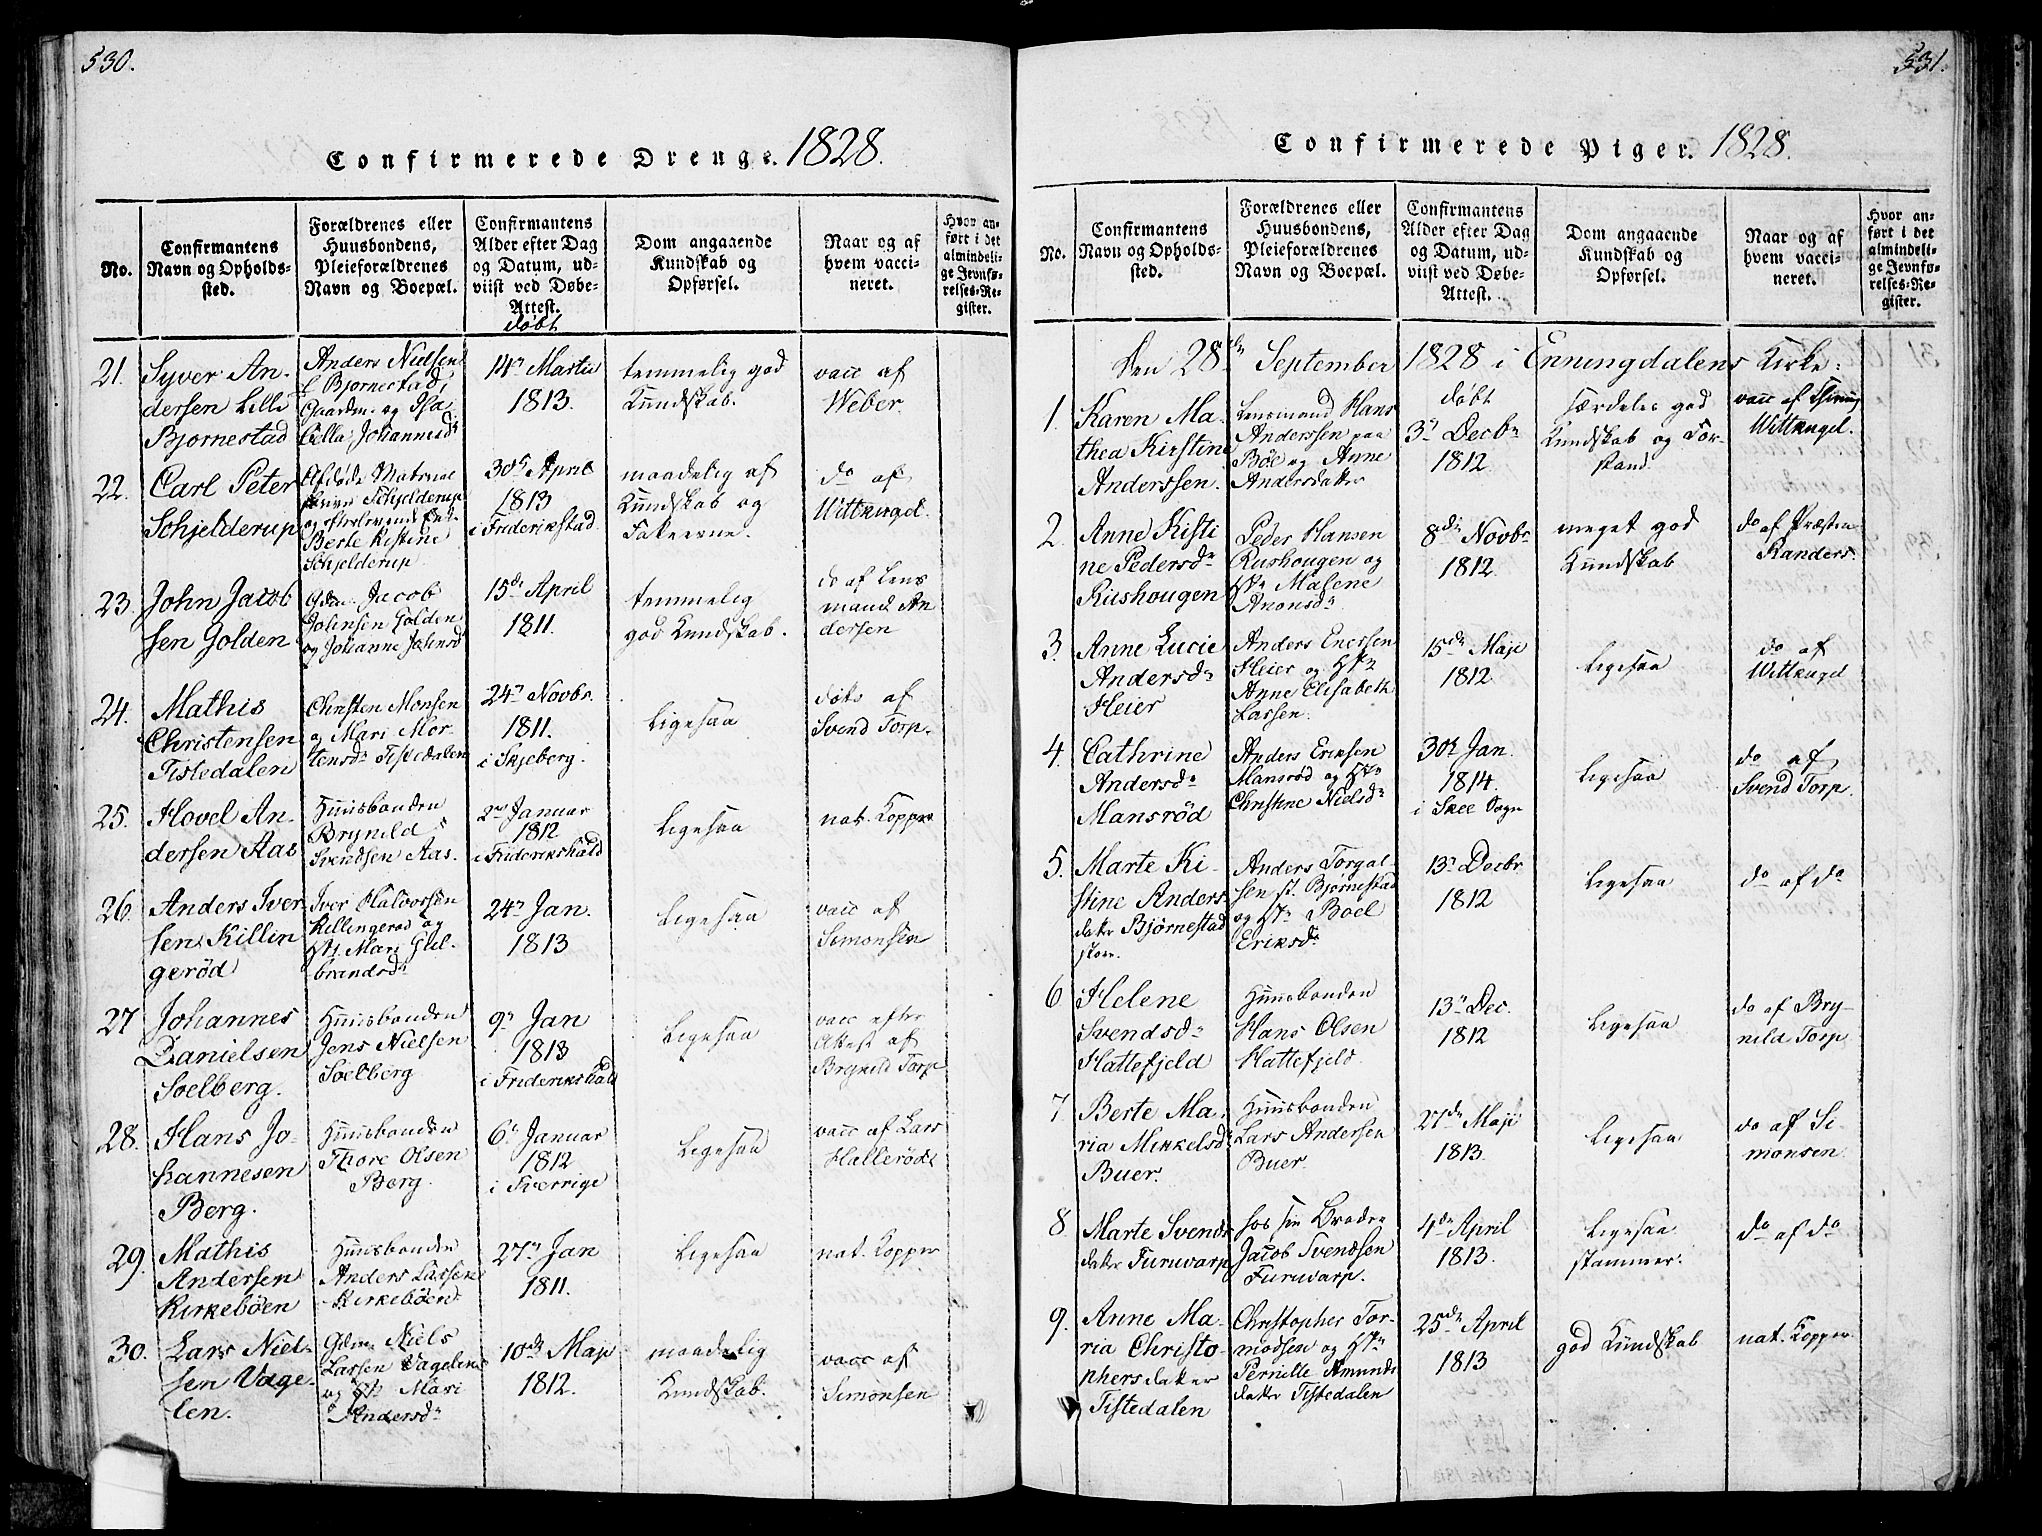 530.
Confirmerede Drenge. 1828.
No.
Confirmantens
Navn og Opholds-
sted.
Forældrenes eller
Huusbondens,
Pleieforældrenes
Navn og Boepæl.
Confirmantens
Alder efter Dag
og Datum, ud-
viist ved Døbe-
Attest.
døbt
Dom angaaende
Kundskab og
Opførsel.
Naar og af
hvem vacci-
neret.
Hvor an-
ført i det
almindeli-
ge Jevnfø-
relses-Re-
gister.
21.
Syver An-
dersen Lille
Bjornestad
Anders Nielsen
L Bjornestad,
Gaardm. og Isa
Cella Johannesd
14 Martii
1813.
temmelig god
Kundskab.
vacc af
Weber
22.
Carl Peter
Schjelderup
Afdøde
Schjelderup
og efterlevende
Berte Kistine
Schjelderup
30 April
1813
i Friderikstad
maadelig af
Kundskab og
do af
Wittkugel.
23.
John Jacob
sen Golden
Gdm. Jacob
Johnsen Golden
og Johanne Johnsd
15de April
1811.
temmelig
god Kundskab.
do af Lens
mand An
dersen
24.
Mathis
Christensen
Tistedalen
Christen Monsen
o Mari Mor
tensdr Tistedalen
24 Novbr.
1811.
i Skjeberg.
Ligesaa
dito af
Svend Torp.
25.
Hovel An-
dersen Aas
Huusbonden
Brynild
Svendsen Aas.
2 Januar
1812
i Friderikshald
Ligesaa
nat. Kopper
26.
Anders Iver
sen Killin
gerød
Iver Halvorsen
Killingerød og
Mari Gul-
brandsdr
24 Jan.
1813
Ligesaa
vacc af
Simonsen
27
Johannes
Danielsen
Soelberg.
Huusbonden
Jens Nielsen
Soelberg
9 Jan
1813
i Friderikshald
Ligesaa
vacc efter
Attest af
Brynild Torp
28.
Hans Jo-
hannesen
Berg.
Huusbonden
Thore Olsen
Berg.
6 Januar
1812
i Sverrige
Ligesaa
vacc af Lars
Hallerød
29.
Mathis
Andersen
Kirkebøen
Huusbonden
Anders Larsen
Kirkebøen
27 Jan
1811.
Ligesaa
nat. Kopper
30.
Lars Niel-
sen Vage-
len.
Gdm. Niels
Larsen Vagelen
og Mari
Andersdr
10de Maji
1812.
maadelig
Kundskab.
vacc af
Simonsen
531.
Confirmerede Piger. 1828.
No.
Confirmantens
Navn og Opholds-
sted.
Forældrenes eller
Huusbondens,
Pleieforældrenes
Navn og Boepæl.
Confirmantens
Alder efter Dag
og Datum, ud-
viist ved Døbe-
Attest.
Dom angaaende
Kundskab og
Opførsel.
Naar og af
hvem vacci-
neret.
Hvor an-
ført i det
almindeli-
ge Jevnfø-
relses-Re-
gister.
Den 28de September 1828 i Enningdalens Kirke.
1.
Karen Ma-
thea Kirstine
Anderssen.
Lensmand Hans
Anderssen paa
Böe og Anne
Andersdatter
døbt
3 Decbr
1812
særdeles god
Kundskab og For-
stand.
vacc af
Wittkugel.
2.
Anne Kisti
ne Pedersdr
Rushougen
Peder Hansen
Rushougen og
Malene
Anonsdr
8de Novbr
1812.
meget god
Kundskab
do af Præsten
Randers.
3.
Anne Lucie
Andersdr
Heier
Anders Enersen
Heier og
Anne Elisabeth
Larsen.
15de Maji
1812.
Ligesaa
do af
Wittkugel
4.
Cathrine
Andersdr
Mansrød
Anders Eriksen
Mansrød og
Christine Nielsdr
30 Jan.
1814.
i Skee Sogn
Ligesaa
do af
Svend Torp.
5.
Marte Ki-
stine Anders
datter Bjørnestad
store.
Anders Torgal-
sen st. Bjørnestad
og Boel
Eriksdr
13 Decbr
1812
Ligesaa
do af do
6
Helene
Svendsdr
Hattefjeld
Huusbonden
Hans Olsen
Hattefjeld.
13 Dec.
1812
Ligesaa
do af Bry-
nild Torp
7
Berte Ma-
ria Mikkelsd
Buer.
Huusbonden
Lars Andersen
Buer.
27de Maji
1813.
Ligesaa
do af Si-
monsen.
8
Marte Svends
datter Furuvarp
hos sin Broder
Jacob Svendsen
Furuvarp.
4de April
1813.
Ligesaa
stammer.
do af do
9.
Anne Ma-
ria Christo-
phersdatter
Tistedalen
Christopher Tor-
modsen og
Pernille Amunds
datter Tistedalen
25de April
1813
god Kundskab
nat. Kopper